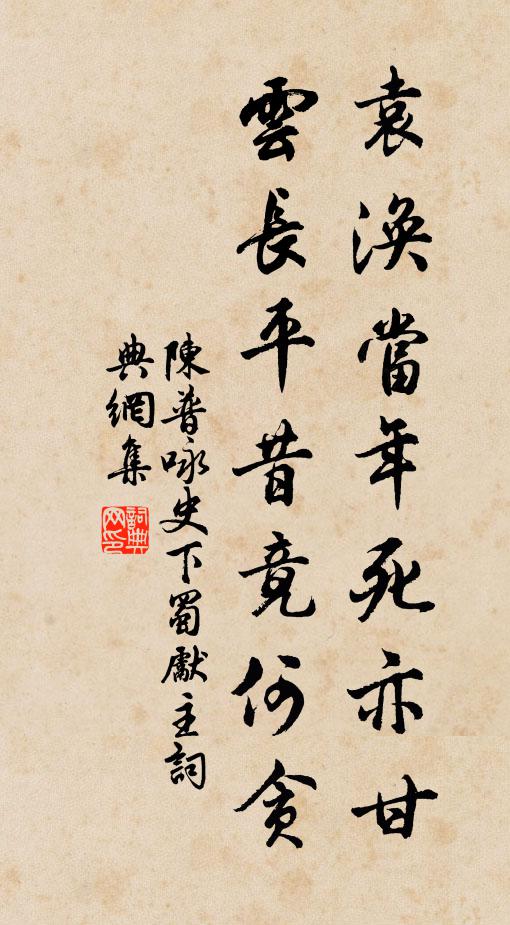 袁渙當年死亦甘
雲長平昔竟何貪
陳普咏史下蜀獻主詞
典網集
詞典
网印